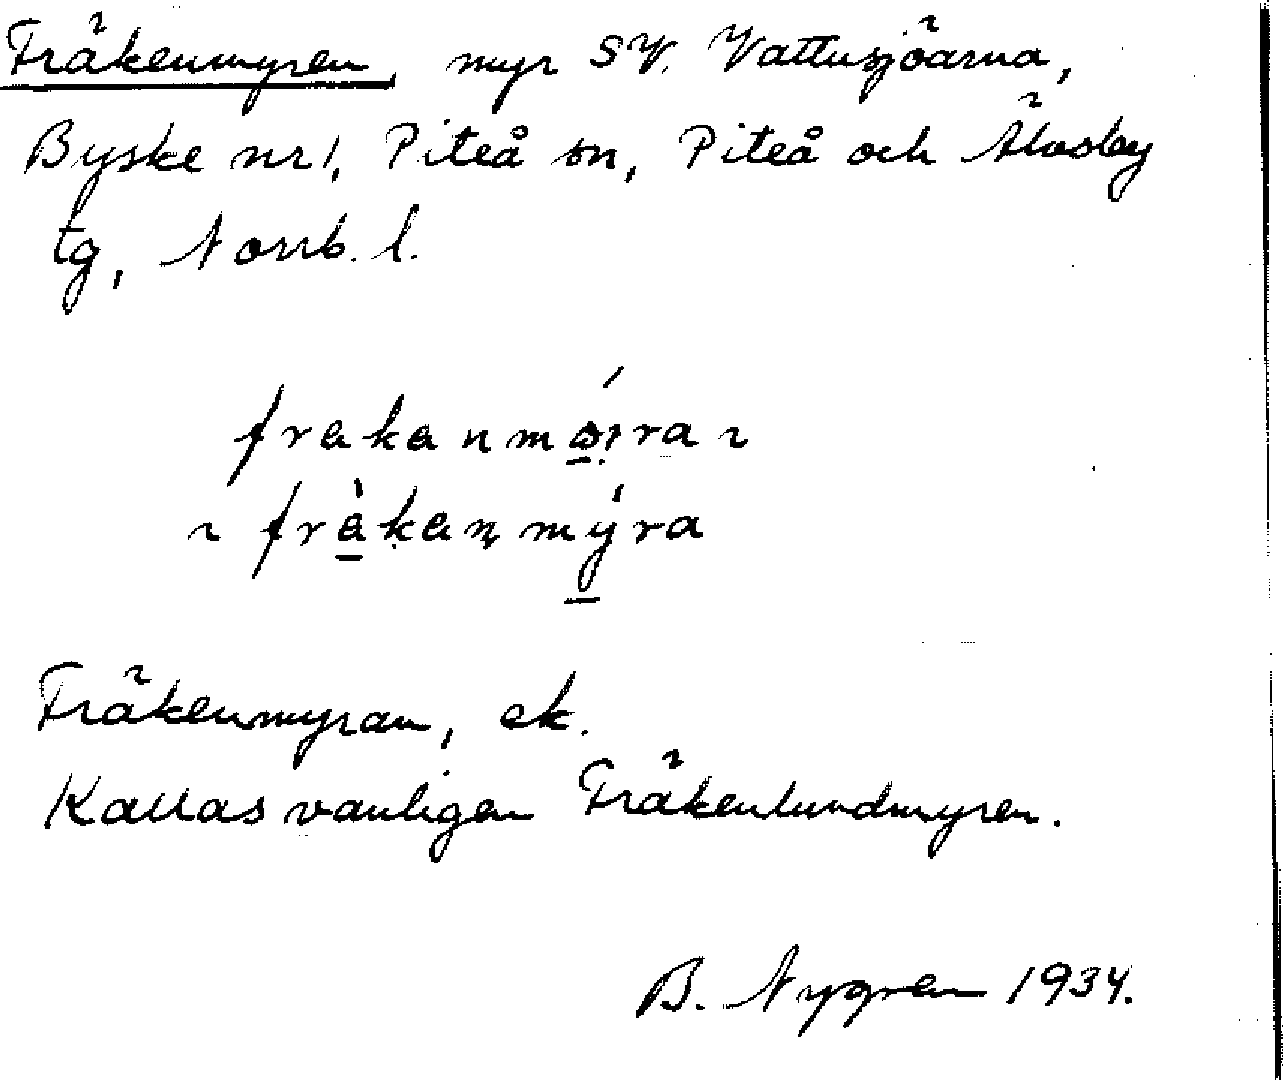 Fräkenmyren, myr SV. Vattusjöarna,
Byske nr 1, Piteå sn, Piteå och Älvsby
tg, Norrb. l.
frakanmøira ~
~ fràkanmýra
Fräkenmyran, ek.
Kallas vanligen Fräkenlundmyren.
B. Nygren 1934.